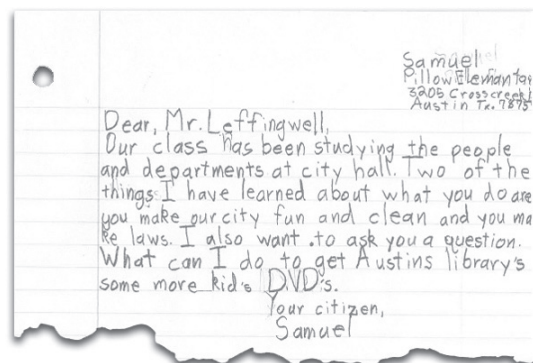 Samuel
Pillow Elemantary
3205 Crosscreek
Austin Tx. 7875
Dear, Mr. Leffingwell,
Our class has been studying the people
and departments at city hall. Two of the
things I have learned about what you do are
you make our city fun and clean and you ma
ke laws. I also want to ask you a question.
What can I do to get Austins library's
some more kid's DVD's.
Your citizen,
Samuel